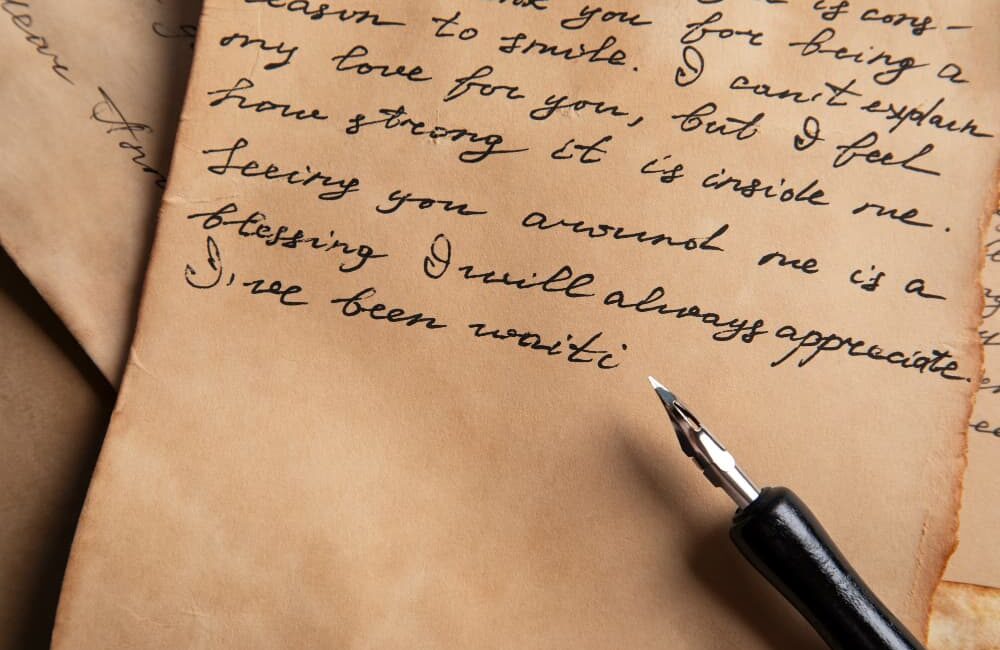 you is cons-
reason to smile. you for being a
my love for you, I can't explain
how strong it is inside me. but I feel
Seeing you around me is a
blessing I will always appreciate.
I've been waiti
Dear